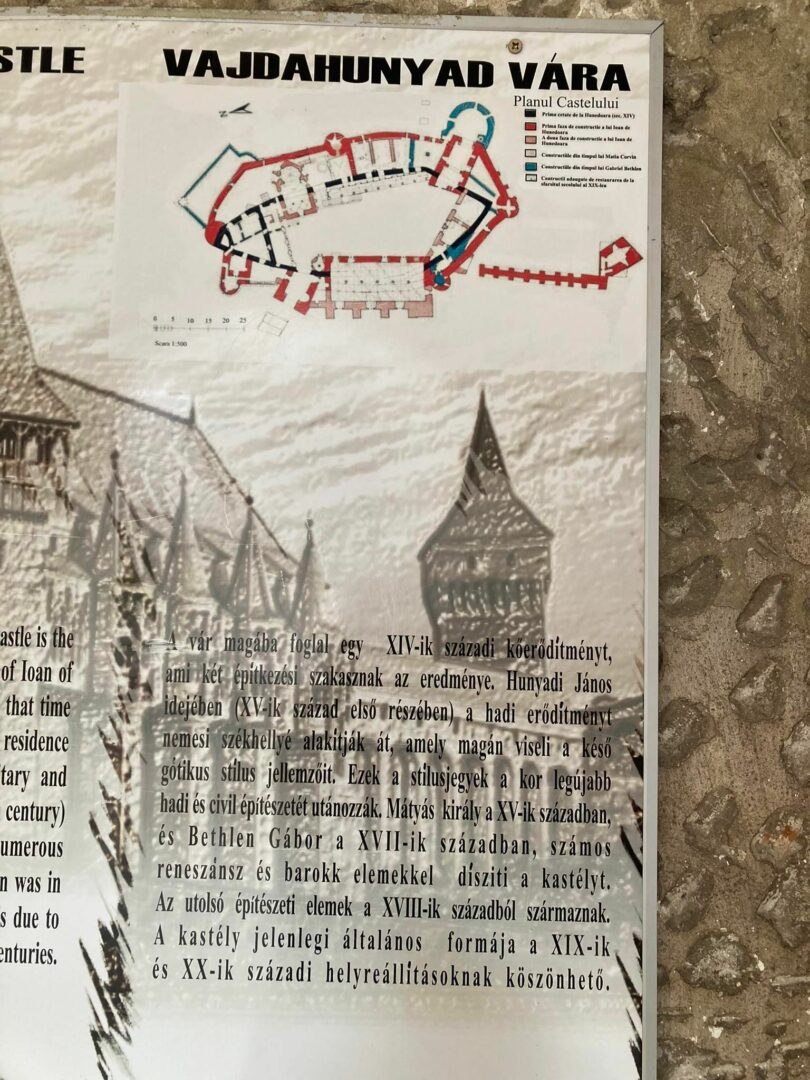 STLE
VAJDAHUNYAD VÁRA
Planul Castelului
Prima cetate de la Hunedoara (sec. XIV)
Prima faza de constructie a lui Ioan de
Hunedoara
A doua faza de constructie a lui Ioan de
Hunedoara
Constructiile din timpul lui Matia Corvin
Constructiile din timpul lui Gabriel Bethlen
Contructii adaugate de restaurarea de la
sfarsitul secolului al XIX-lea
N
0 5 10 15 20 25
Scara 1:500
astle is the
of Ioan of
that time
residence
tary and
century)
umerous
n was in
s due to
enturies.
A vár magába foglal egy XIV-ik századi kőerődítményt,
ami két építkezési szakasznak az eredménye. Hunyadi János
idejében (XV-ik század első részében) a hadi erődítményt
nemesi székhellyé alakitják át, amely magán viseli a késő
gótikus stílus jellemzőit. Ezek a stílusjegyek a kor legújabb
hadi és civil építészetét utánozzák. Mátyás király a XV-ik században,
és Bethlen Gábor a XVII-ik században, számos
reneszánsz és barokk elemekkel díszíti a kastélyt.
Az utolsó építészeti elemek a XVIII-ik századból származnak.
A kastély jelenlegi általános formája a XIX-ik
és XX-ik századi helyreállításoknak köszönhető.